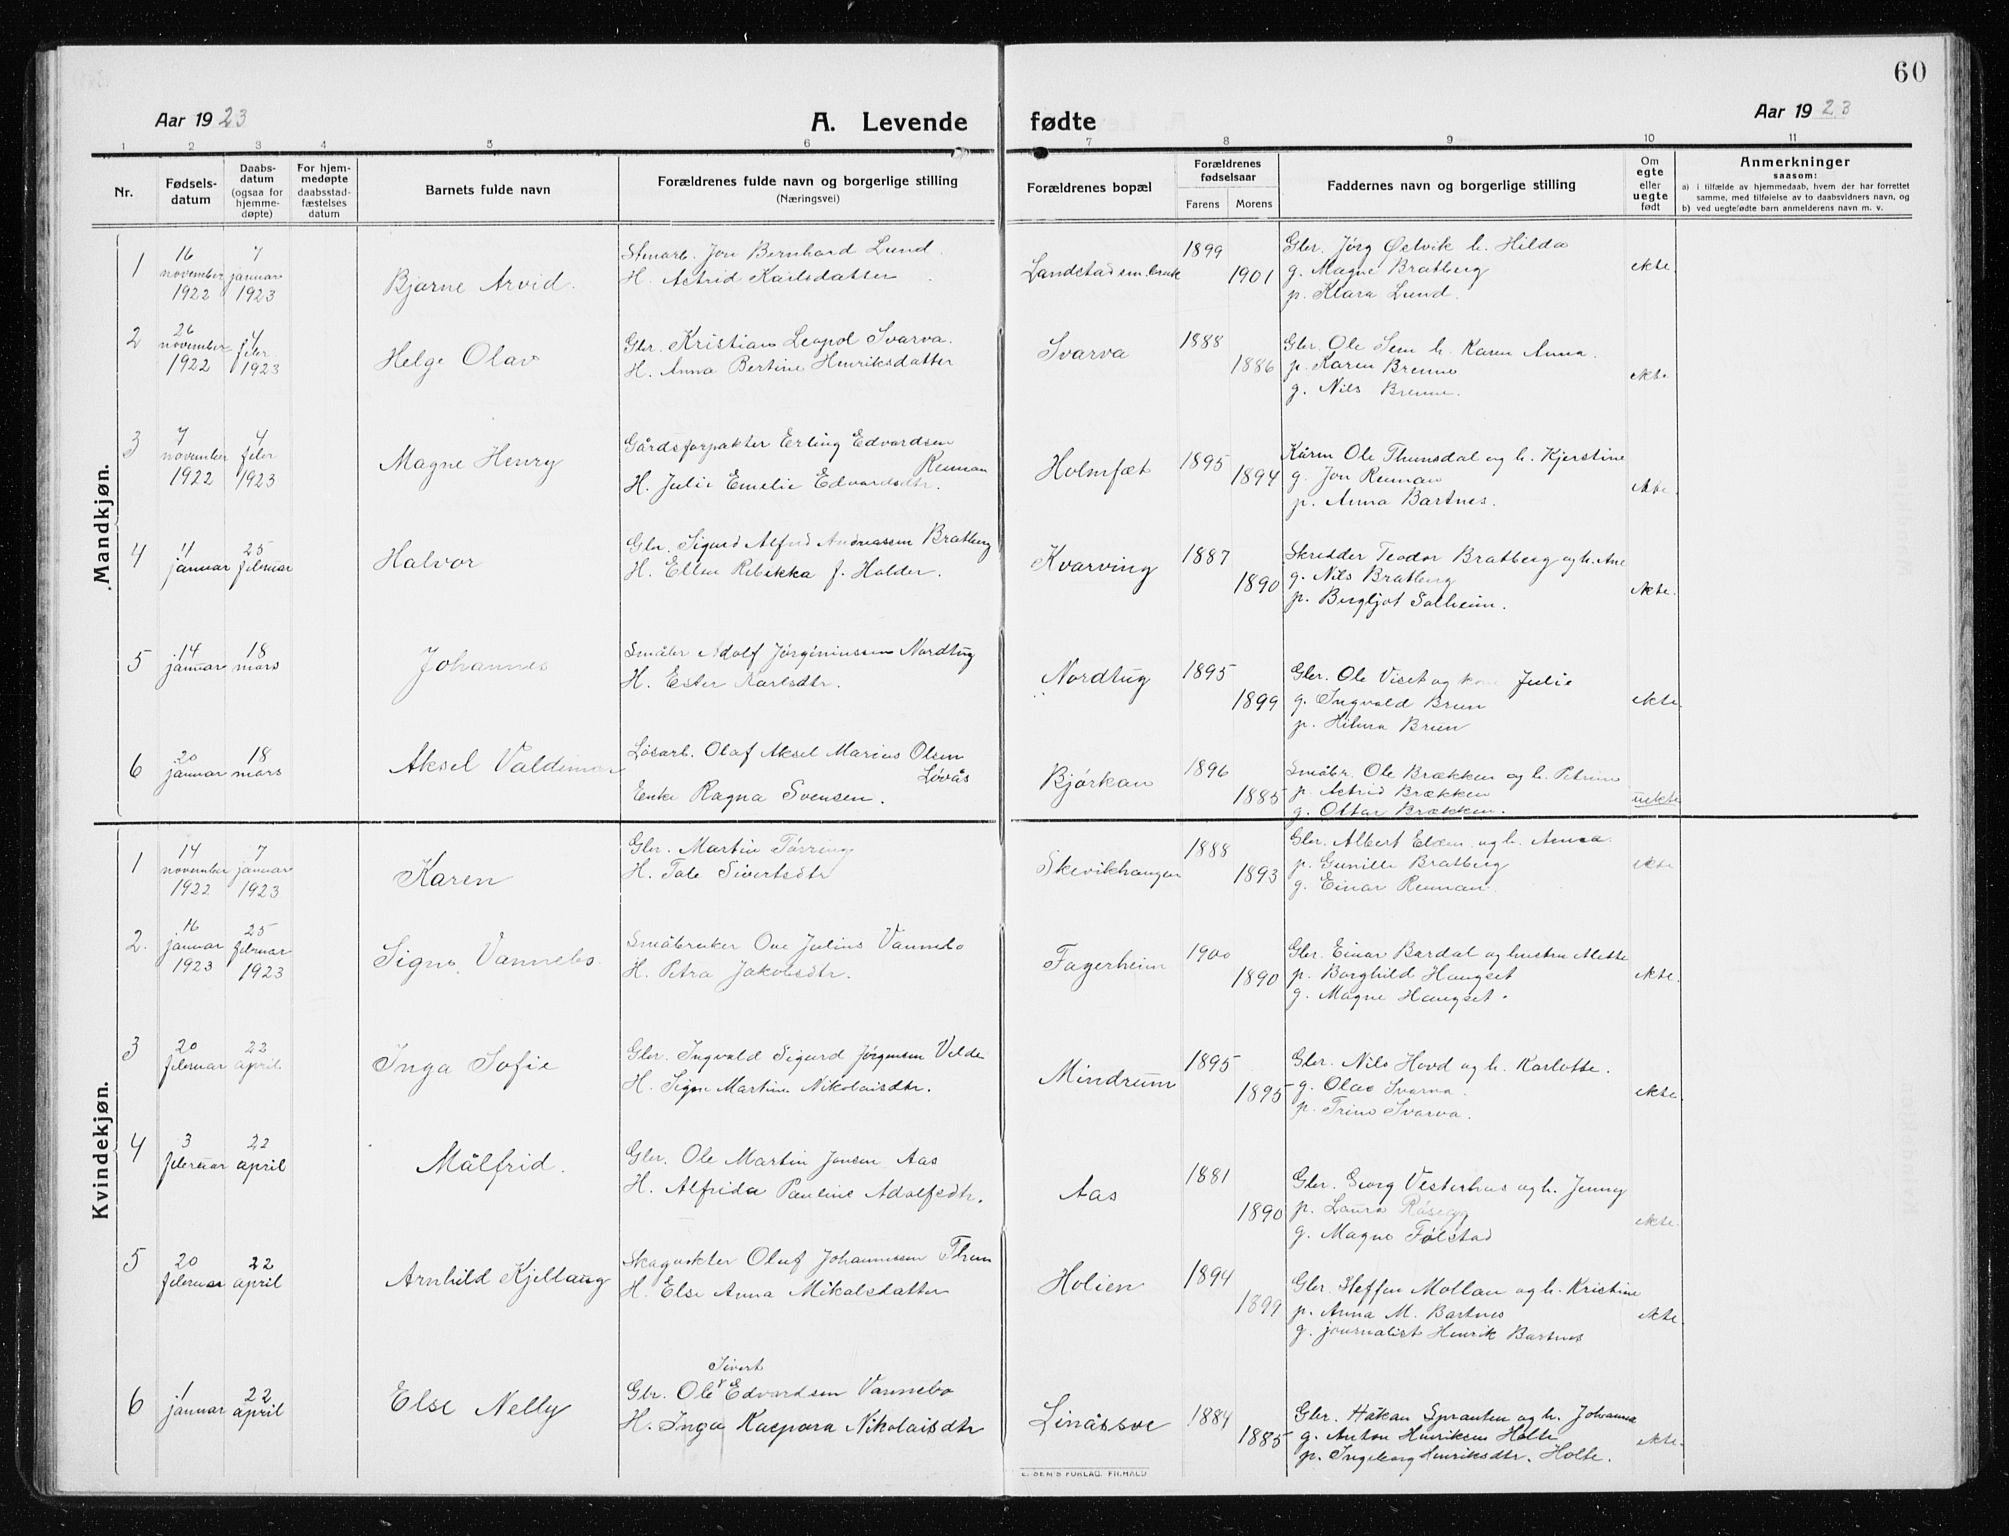 60
Aar 1923
A. Levende fødte
Aar 1923
1 2 3 4 5 6 7 8 9 10 11
Nr.
Fødsels-
datum
Daabs-
datum
(ogsaa for
hjemme-
døpte)
For hjem-
medøpte
daabsstad-
fæstelses
datum
Barnets fulde navn
Forældrenes fulde navn og borgerlige stilling
(Næringsvei)
Forældrenes bopæl
Forældrenes
fødselsaar
Farens Morens
Faddernes navn og borgerlige stilling
Om
egte
eller
uegte
født
Anmerkninger
saasom:
a) i tilfælde av hjemmedaab, hvem der har forrettet
samme, med tilføielse av to daabsvidners navn, og
b) ved uegtefødte barn anmelderens navn m. v.
Mandkjøn.
1
16
november
1922
7
januar
1923
Bjarne Arvid.
Stmarb. Jon Bernhard Lund.
H. Astrid Karlsdatter
Landstadsem. bruk
1899
1901
Gbr. Jørg Østvik h. Hilda
g. Magne Bratberg
p. Klara Lund.
ekte
2
26
november
1922
4
febr
1923
Helge Olav
Gbr. Kristian Leopol Svarva.
H. Anna Bertine Henriksdatter
Svarva
1888
1886
Gbr. Ole Sem h. Karen Anna.
p. Karen Brenne
g. Nils Brenne.
ekte
3
7
november
1922
4
febr
1923
Magne Henry
Gårdsforpakter Erling Edvardsen
Reuman
H. Julie Emelie Edvardsdtr.
Holmfæt
1895
1894
Kårm Ole Thunsdal og h. Kjerstine
g. Jon Reuman
p. Anna Bartnes.
ekte.
4
4
januar
25
februar
Halvor
Gbr. Sigurd Alfred Andreassen Bratberg
H. Ellen Rebekka f. Halder.
Kvarving
1887
1890
Skredder Teodor Bratberg og h. Ane
g. Nils Bratberg
p. Bergljot Solheim.
ekte.
5
14
januar
18
mars
Johannes
Småbr Adolf Jørginiussen Nordtug
H. Ester Karlsdtr.
Nordtug
1895
1899
Gbr. Ole Viset og kone Julie
g. Ingvald Brun
p. Hilma Brun
ekte.
6
20
januar
18
mars
Aksel Valdemar
Løsarb. Olaf Aksel Marius Olsen
Løvås
Enke Ragna Svensen.
Bjørkan
1896
1885
Småbr. Ole Brækken og h. Petrine
p. Astrid Brækken
g. Ottar Brækken.
uekte
Kvindekjøn.
1
14
november
1922
7
januar
1923
Karen
Gbr. Martin Tørring
H. Tale Sivertsdtr
Skevikhaugen
1888
1893
Gbr. Albert Elden og h. Anna.
p. Gunille Bratberg
g. Einar Reuman.
ekte
2.
16
januar
1923
25
februar
1923
Signe Vannebo.
Småbruker Ove Julius Vannebo
H. Petra Jakobsdtr.
Fagerheim
1900
1890
Gbr. Einar Bardal og hustru Alette
p. Borghild Haugset
g. Magne Haugset.
ekte.
3
20
februar
22
april
Inga Sofie
Gbr. Ingvald Sigurd Jørgensen Velde
H. Signe Martine Nikolaisdtr.
Mindrum
1895
1895
Gbr. Nils Hovd og h. Karlotte.
g. Olav Svarva.
p. Trine Svarva.
ekte.
4
3
februar
22
april
Målfrid.
Gbr. Ole Martin Jonsen Aas
H. Alfrida Pauline Adolfsdtr.
Aas
1881
1890
Gbr. Georg Vesterhus og h. Jenny
p. Laura Rösegg
g. Magne Følstad
ekte.
5
20
februar
22
april
Arnhild Kjellaug
Skogvokter Oluf Johannessen Thun
H. Else Anna Mikalsdatter
Holien
1894
1899
Gbr. Steffen Mollan og h. Kristine
p. Anna M. Bartnes
g. journalist Henrik Bartnes
ekte.
6
1
januar
22
april
Else Nelly
Sivert
Gbr. Ole Edvardsen Vannebo
H. Inga Kaspara Nikolaisdtr
Linåssve
1884
1885
Gbr. Håkan Sprauten og h. Johanna
g. Anton Henriksen Holte
p. Ingeborg Henriksdtr. Holte.
ekte.
E. SEM'S FORLAG, FR.HALD